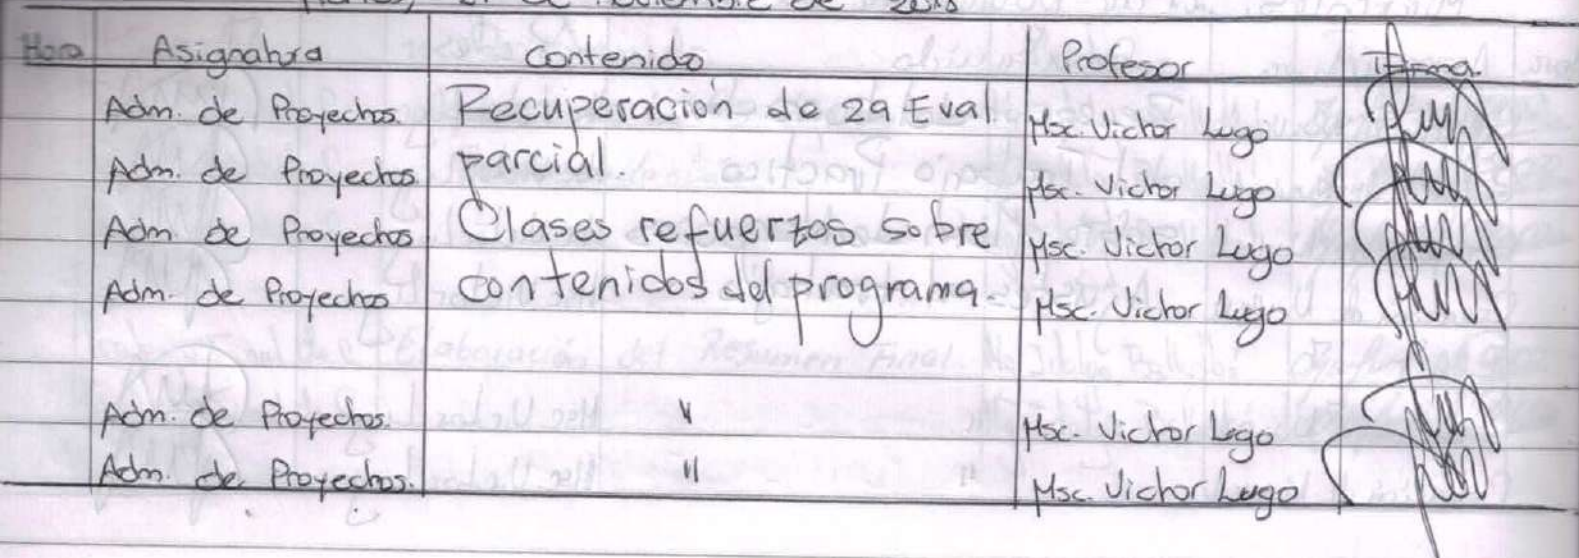 de Noviembre de 2018
Hora Asignatura Contenido Profesor Firma
Adm. de Proyectos. Recuperación de 2a Eval Msc. Victor Lugo
Adm. de Proyectos parcial. Msc. Victor Lugo
Adm. de Proyectos Clases refuerzos sobre Msc. Victor Lugo
Adm. de Proyectos contenidos del programa. Msc. Victor Lugo
Adm. de Proyectos. " Msc. Victor Lugo
Adm. de Proyectos. " Msc. Victor Lugo